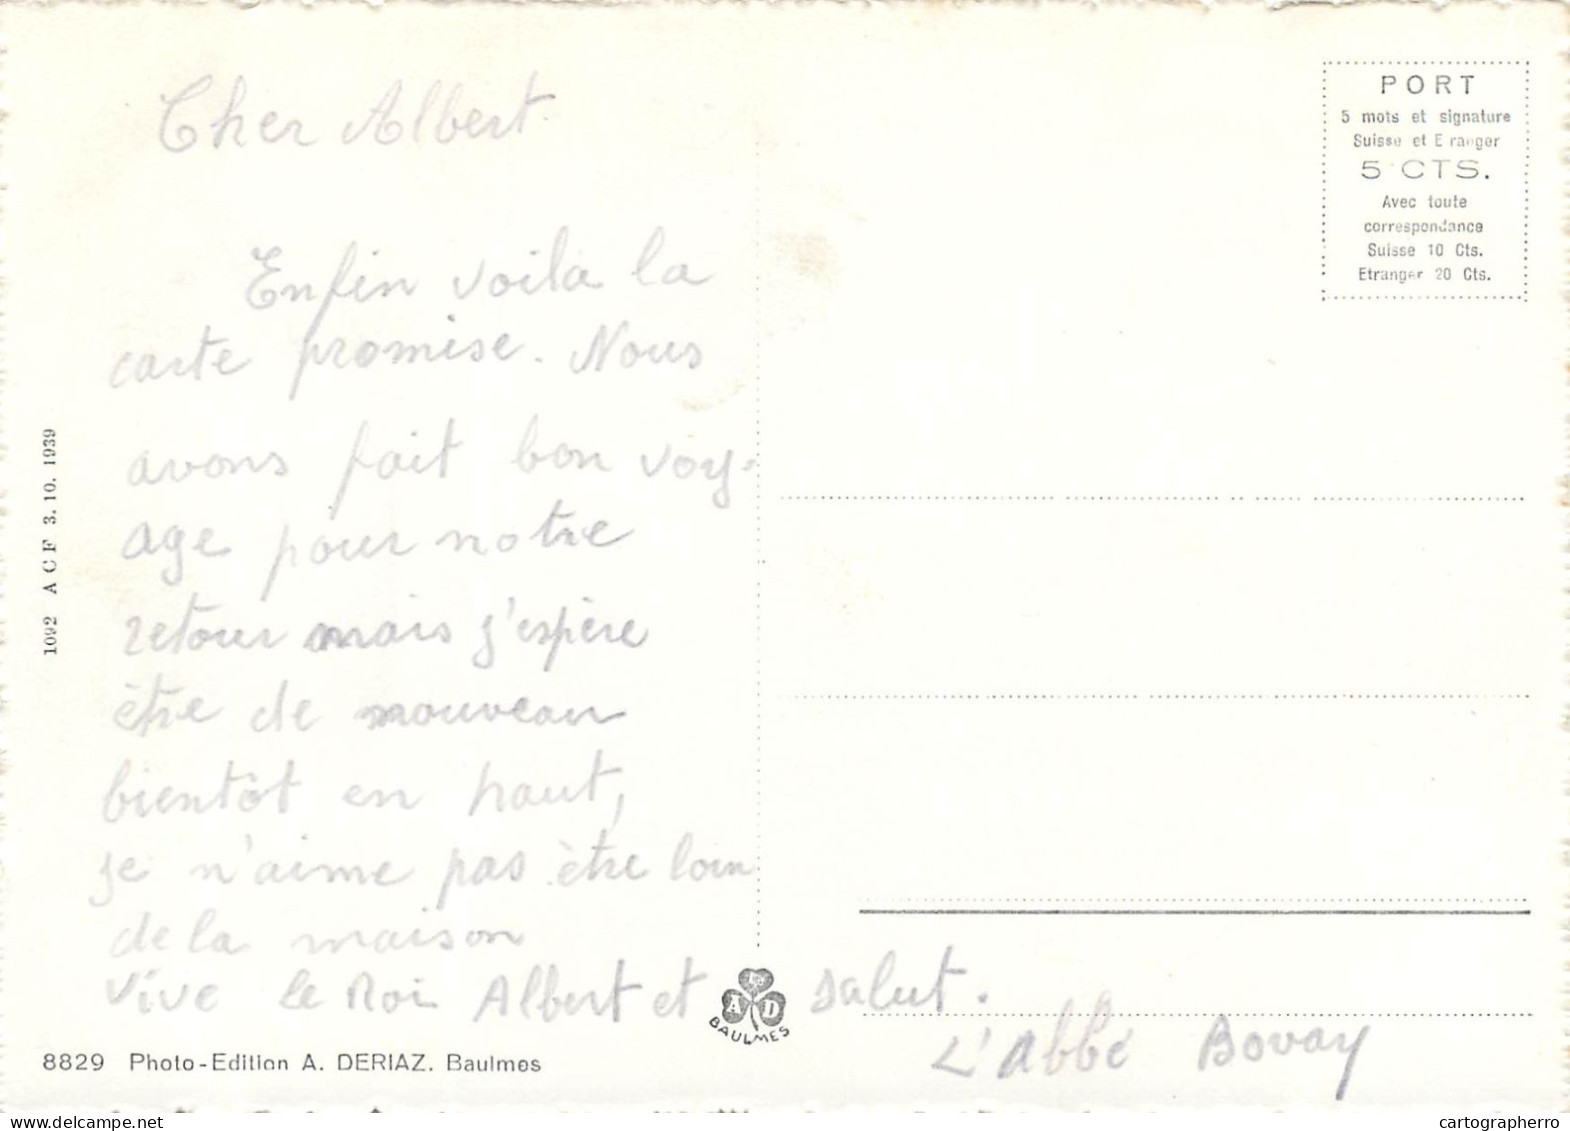 Cher Albert
Enfin voila la
carte promise. Nous
avons fait bon voy-
age pour notre
retour mais j'espère
être de nouveau
bientôt en haut,
je n'aime pas être loin
de la maison
Vive le Roi Albert et salut.
L'abbé Bovay
PORT
5 mots et signature
Suisse et E ranger
5 CTS.
Avec toute
correspondance
Suisse 10 Cts.
Etranger 20 Cts.
1092 A C F 3. 10. 1939
A D
BAULMES
8829 Photo-Edition A. DERIAZ. Baulmes
www.delcampe.net
cartographerro